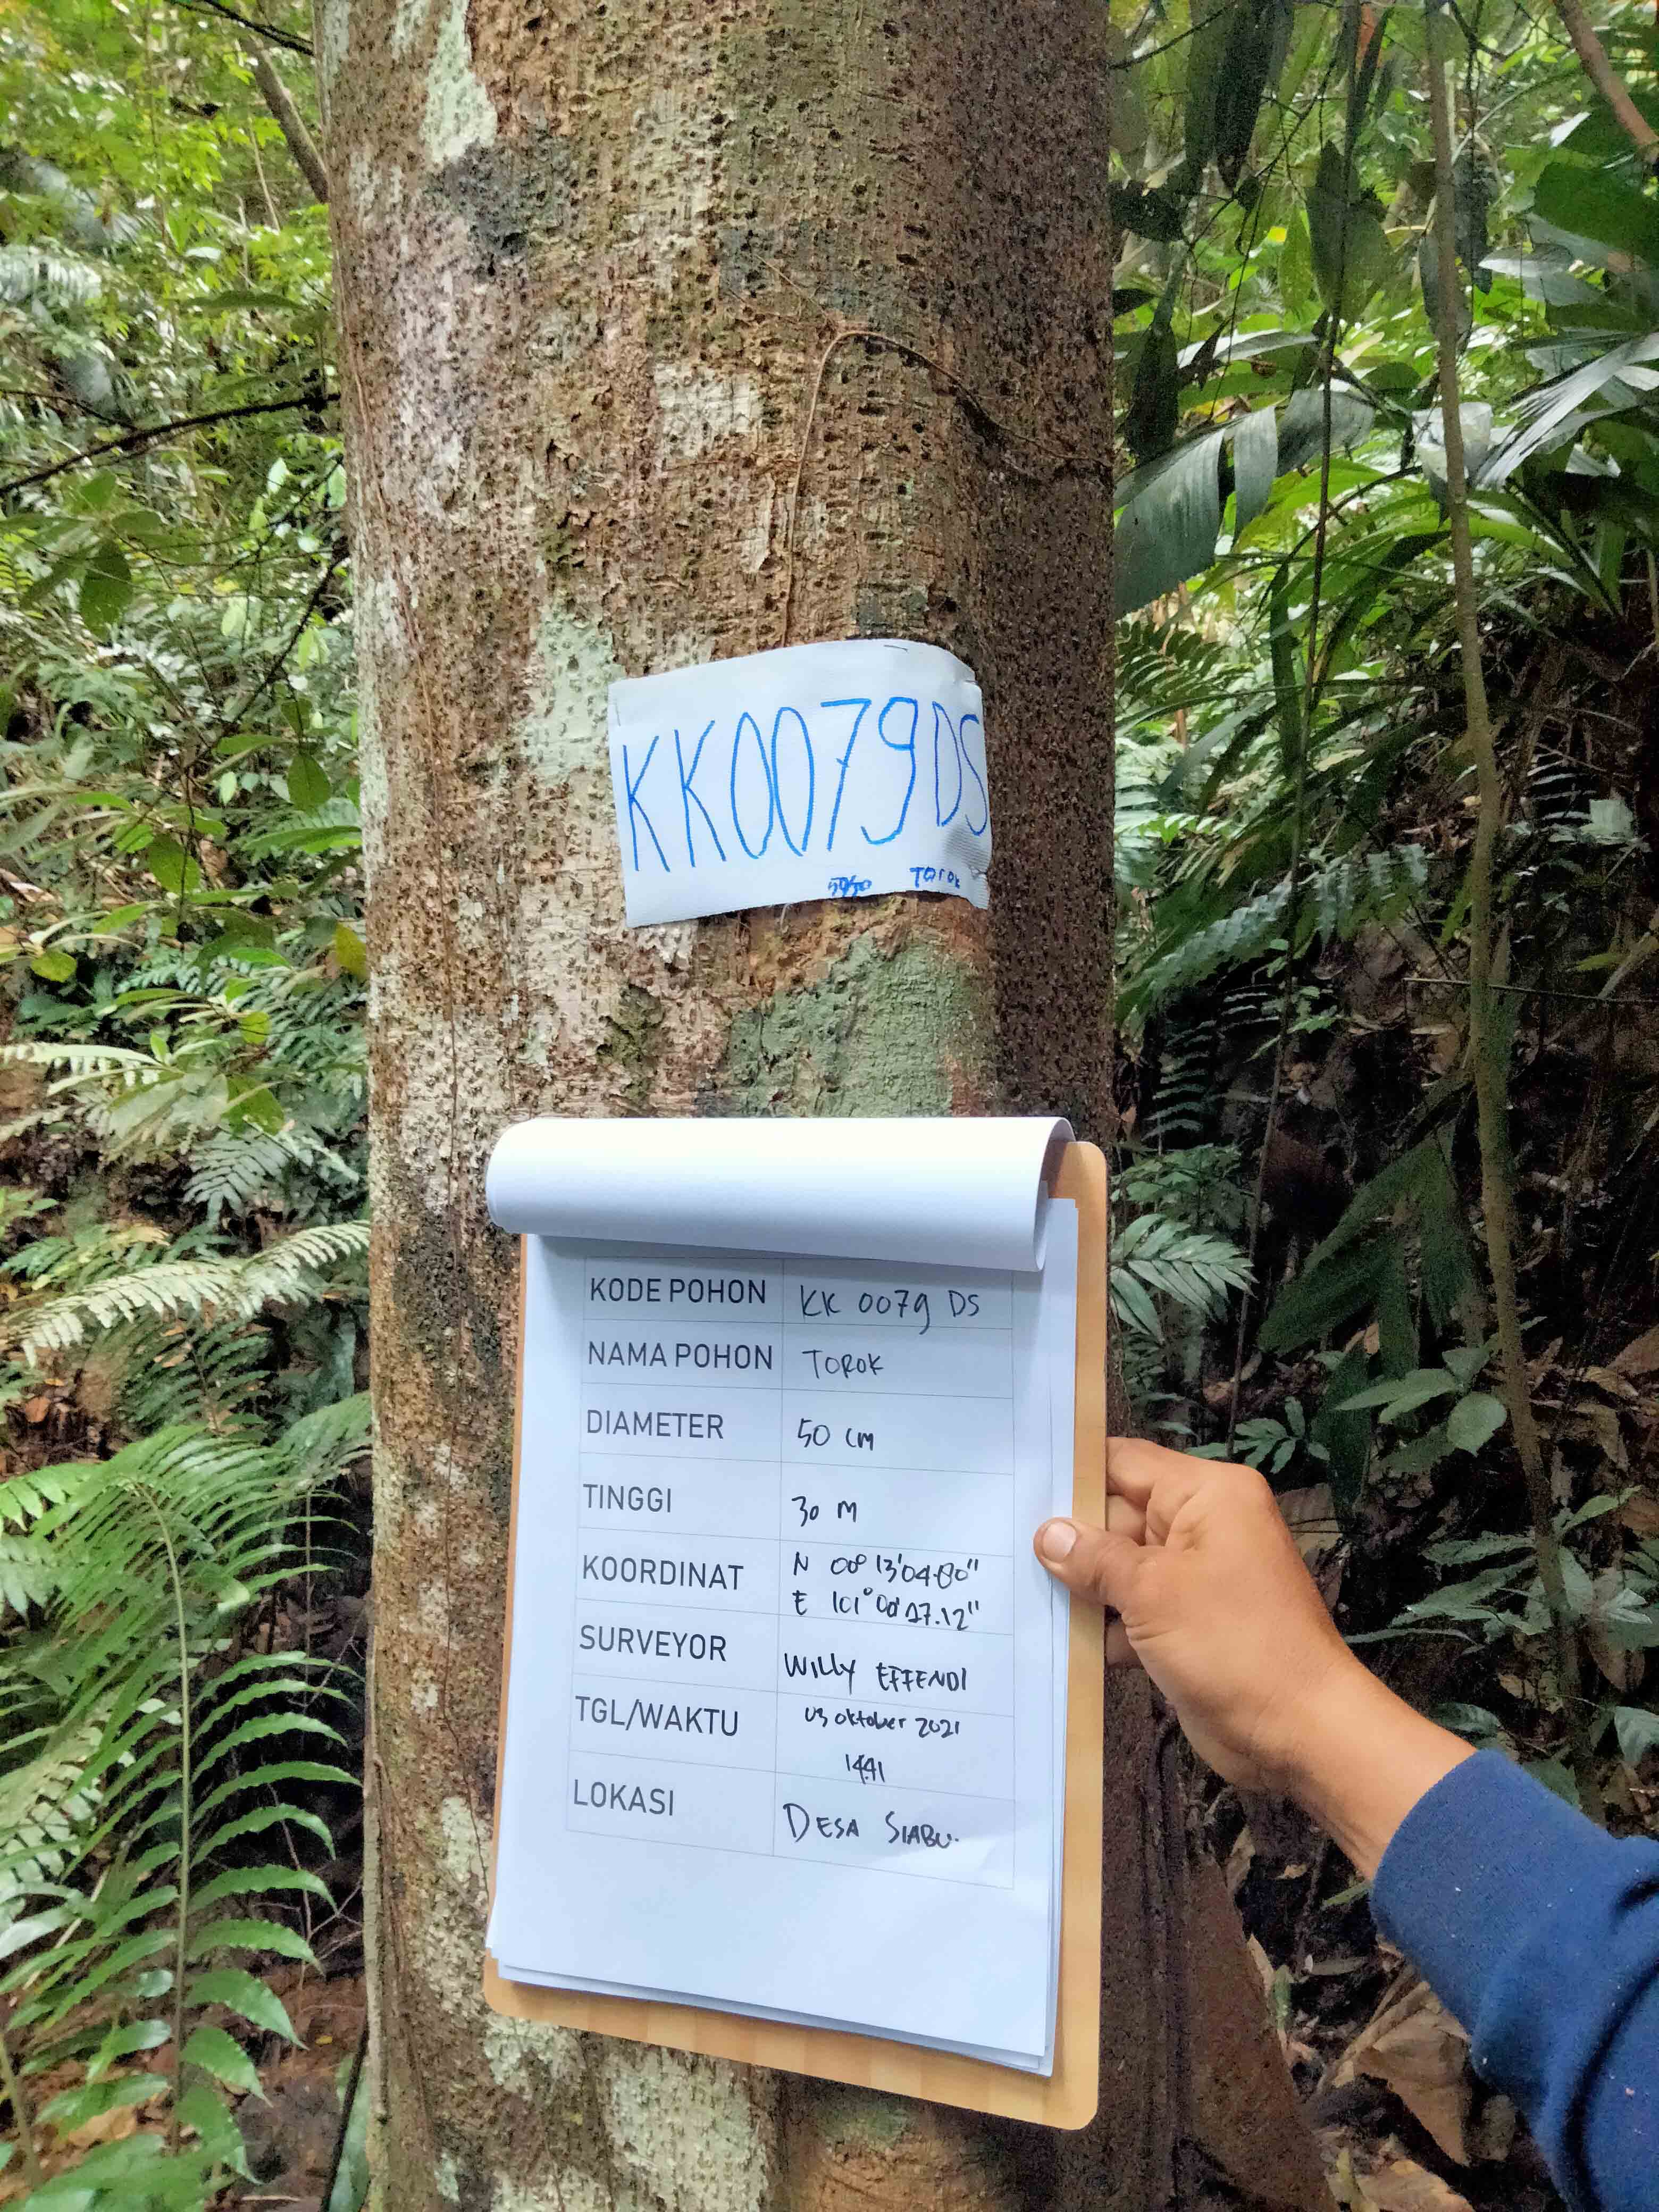 KK0079DS
Torok
KODE POHON KK 0079 DS
NAMA POHON TOROK
DIAMETER 50 CM
TINGGI 30 M
KOORDINAT N 00° 13'04.80"
E 101° 00' 17.12"
SURVEYOR WILLY EFFENDI
TGL/WAKTU 03 oktober 2021
1441
LOKASI DESA SIABU.